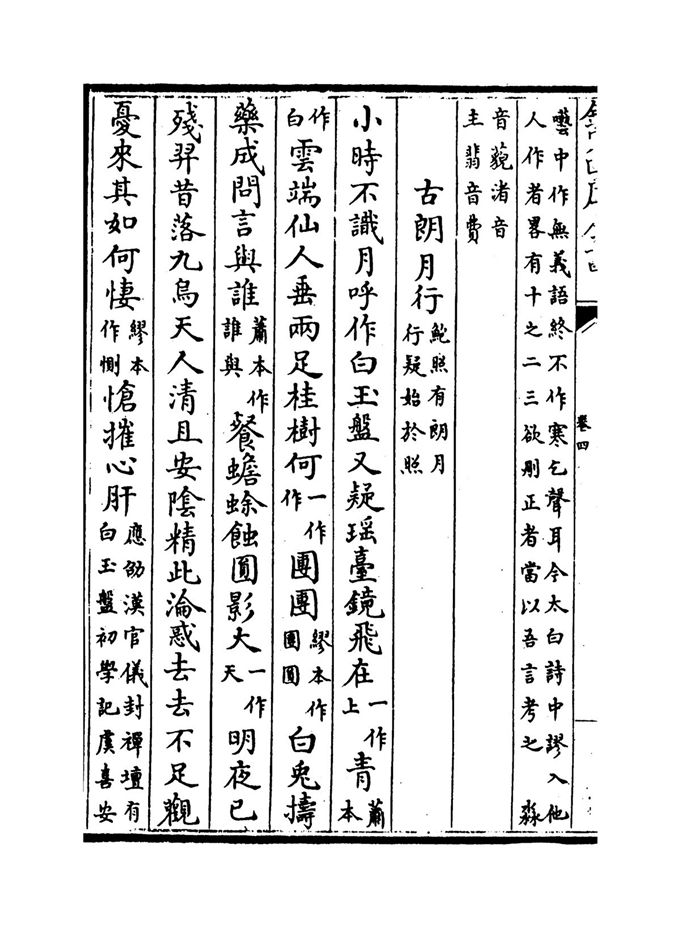 卷四
囈中作無義語終不作寒乞聲耳今太白詩中謬入他
人作者畧有十之二三欲刪正者當以吾言考之 淼
音藐渚音
主翡音費
古朗月行鮑照有朗月行疑始於照
小時不識月呼作白玉盤又疑瑶臺鏡飛在一作上青蕭本
作白雲端仙人垂兩足桂樹何一作作團團繆本作圓圓白兔擣
藥成問言與誰蕭本作誰與餐蟾蜍蝕圓影大一作天明夜已
殘羿昔落九烏天人清且安陰精此淪惑去去不足觀
憂來其如何悽繆本作惻愴摧心肝應劭漢官儀封禪壇有白玉盤初學記虞喜安